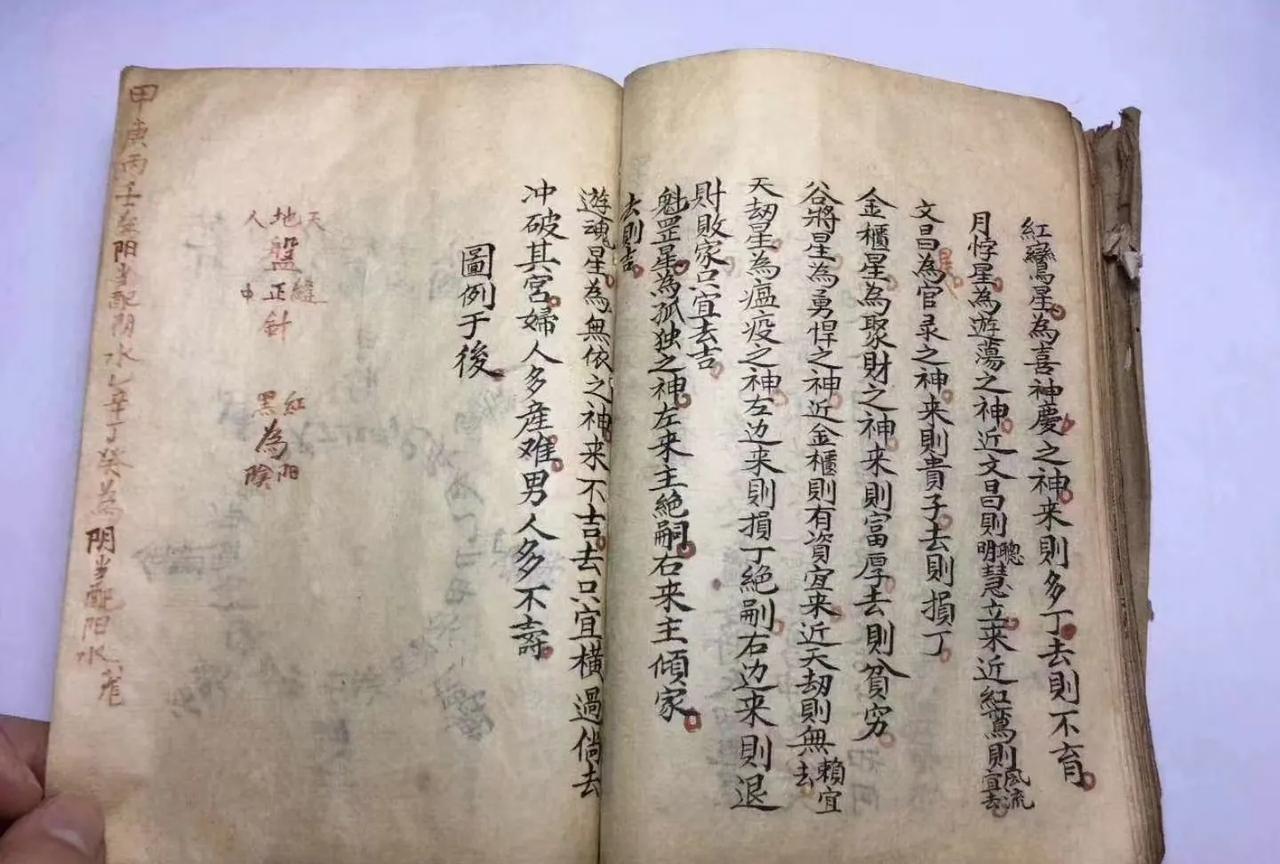 紅鸞星為喜神慶之神来則多丁去則不育
月悖星為遊蕩之神近文昌則聰明慧立来近紅鸞則風流宜去
文昌星為官录之神来則貴子去則損丁
金櫃星為聚財之神来則富厚去則貧穷
谷將星為勇悍之神近金櫃則有資宜来近天刼則無賴宜去
天刼星為瘟疫之神左边来則損丁绝嗣右边来則退
財敗家只宜去吉
魁罡星為孤独之神左来主绝嗣右来主傾家
去則吉
遊魂星為無依之神来不吉去只宜橫過倘去
冲破其宮婦人多産难男人多不壽
圖例于後
天地人
盤
縫正中
針
紅黑
為
阳陰
甲庚丙壬為阳当配阴水乙辛丁癸為阴当配阳水